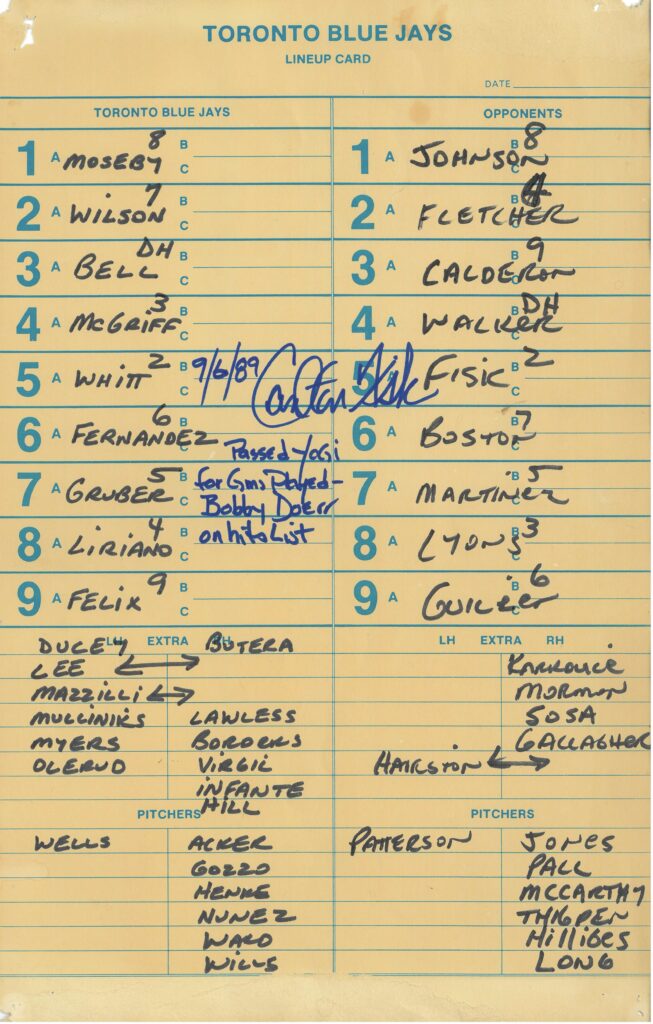 TORONTO BLUE JAYS
LINEUP CARD
DATE
TORONTO BLUE JAYS
1 A MOSEBY 8 B C
2 A WILSON 7 B C
3 A BELL DH B C
4 A McGRIFF 3 B C
5 A WHITT 2
6 A FERNANDEZ 6 B C
7 A GRUBER 5 B C
8 A LIRIANO 4 B C
9 A FELIX 9 B C
9/6/89 Carlton Fisk
Passed Yogi
for Gms Played-
Bobby Doerr
on hits List
OPPONENTS
1 A JOHNSON 8 B C
2 A FLETCHER 4 B C
3 A CALDERON 9 B C
4 A WALKER DH B C
5 FISK 2 B C
6 A BOSTON 7 B C
7 A MARTINEZ 5 B C
8 A LYONS 3 B C
9 A GUILLEN 6 B C
LH EXTRA RH
DUCEY BUTERA
LEE
MAZZILLI
MULLINIKS LAWLESS
MYERS BORDERS
OLERUD VIRGIL
INFANTE
HILL
PITCHERS
WELLS ACKER
GOZZO
HENKE
NUNEZ
WARD
WILLS
LH EXTRA RH
KARKOVICE
MORMAN
SOSA
GALLAGHER
HAIRSTON
PITCHERS
PATTERSON JONES
PALL
MCCARTHY
THIGPEN
HILLIGES
LONG